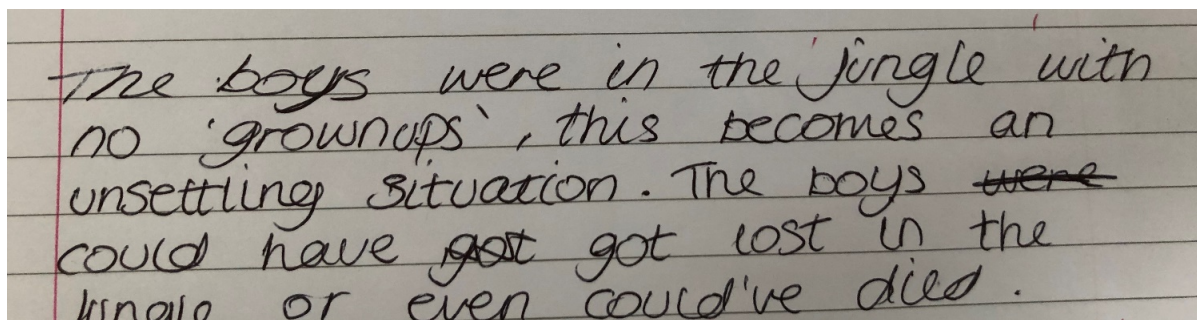 The boys were in the jungle with
no 'grownups', this becomes an
unsettling situation. The boys were
could have got got lost in the
jungle or even could've died.